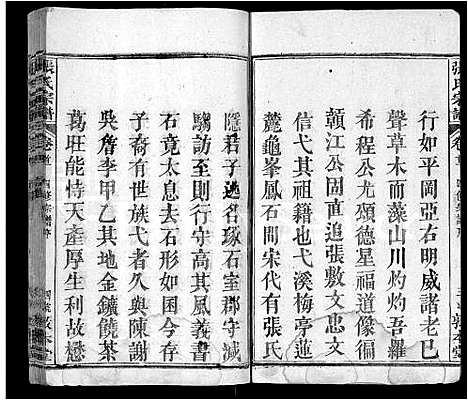 張氏宗譜
卷首
行如平岡亞右明威諸老巳
聲草木而藻山川灼灼吾羅
希程公尤頌德星福道像徊
贑江公固直追張敷文忠文
信公其祖籍也弋溪梅亭蓮
麓龜峯鳳石間宋代有張氏
隱君子逸名琢石室郡守减
騶訪至行守高其風義書
石竟太息去石形如困今存
子裔有世族弋者久與陳謝
吳詹李甲乙其金鑛饒茶
葛旺能恃天產厚生利故懋
張氏宗譜
卷首
敦本堂